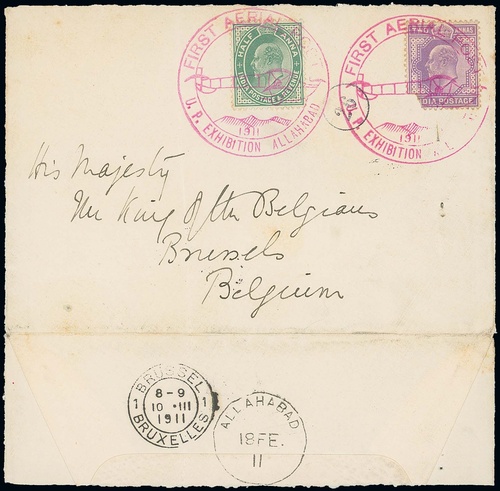 FIRST AERIAL
HALF ANNA
INDIA POSTAGE & REVENUE
1911
U. P. EXHIBITION ALLAHABAD
FIRST AERIAL
ANNAS
DIA POSTAGE
1911
U. P. EXHIBITION
His Majesty
The King of the Belgians
Brussels
Belgium
BRUSSEL
8-9
1 10 • III 1
1911
BRUXELLES
ALLAHABAD
18 FE.
11